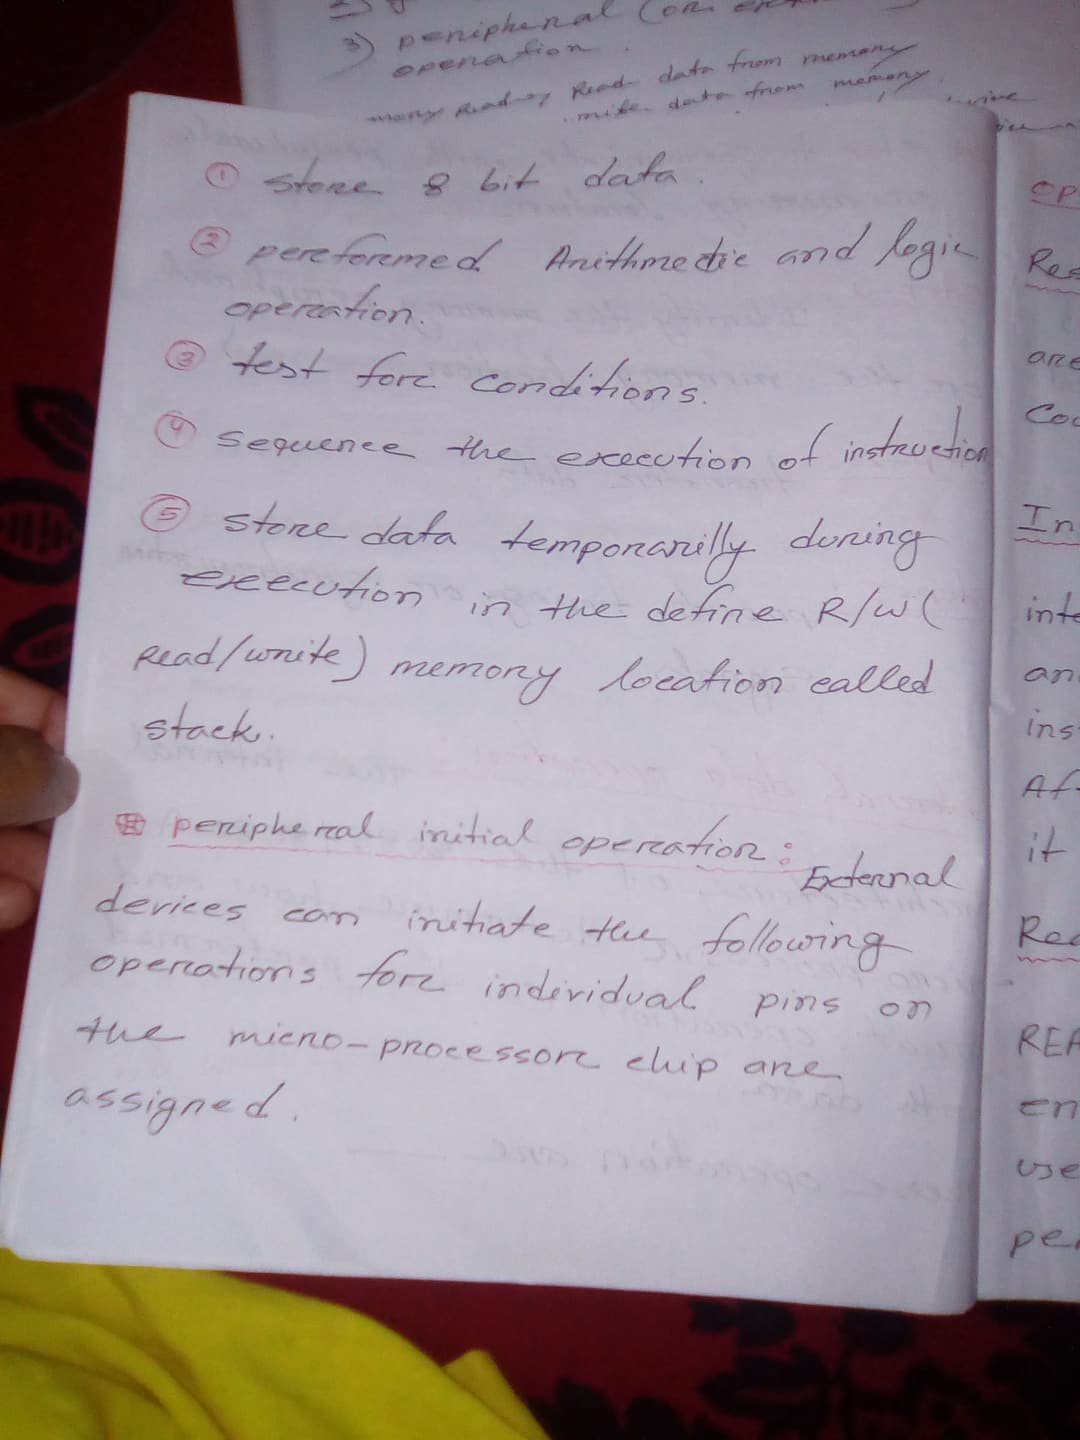 3) peripheral (or
operation.
Read data from memory
data from memory
① store 8 bit data.
② pereformed Arithmetic and logic
operation.
③ test for conditions.
④ sequence the execution of instruction
⑤ store data temporarilly during
execution in the define R/W (
Read/write) memory location called
stack.
peripheral initial operation: External
devices can initiate the following
operations for individual pins on
the micro-processor chip are
assigned.
Op
Res
are
In
inte
an
ins
Af
it
Rea
REA
en
use
per